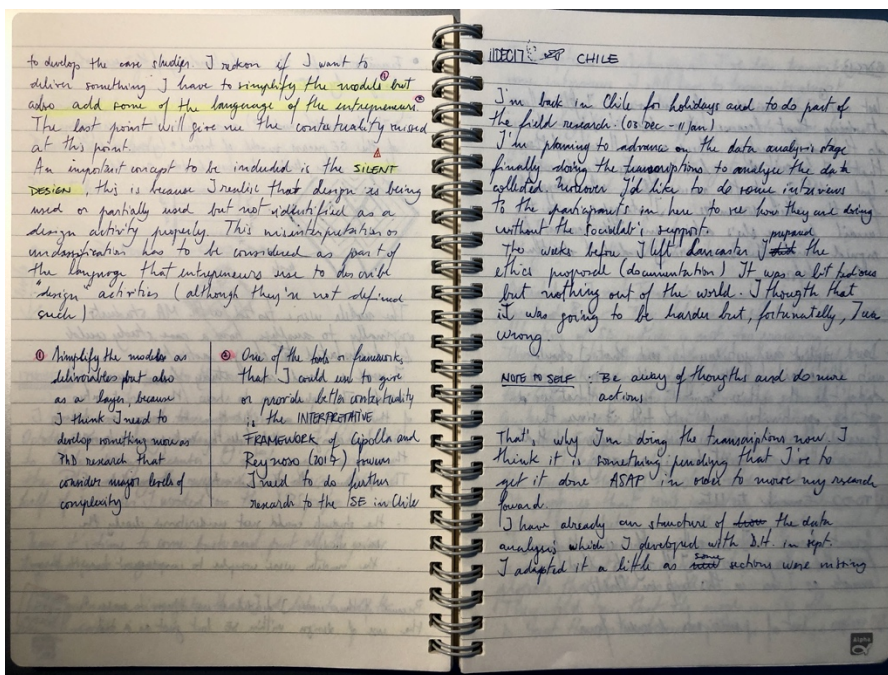 to develop the case studies. I reckon if I want to
deliver something I have to simplify the models ① but
also add some of the language of the entrepreneurs ②
The last point will give me the contextuality missed
at this point.
An important concept to be included is the SILENT
DESIGN, this is because I realise that design is being
used or partially used but not identified as a
design activity properly. This misinterpretation or
has to be considered as part of
the language that entrepreneurs use to describe
"design" activities (although they're not defined
such)
① Simplify the models as
deliverables but also
as a layer, because
I think I need to
develop something more as
PhD research that
consider major levels of
complexity
② One of the tools or frameworks
that I could use to give
or provide better contextuality
is the INTERPRETATIVE
FRAMEWORK of Cipolla and
Reynoso (2017)
I need to do further
research to the SE in Chile
11DEC17 CHILE
I'm back in Chile for holidays and to do part of
the field research. (03 Dec - 11 Jan)
I'm planning to advance on the data analysis stage
finally doing the transcriptions to analyse the data
collected. Moreover I'd like to do some interviews
to the participants in here to see how they are doing
without the Socialab's support.
prepared
The weeks before I left Lancaster I the
ethics proposal (documentation) It was a bit tedious
but nothing out of the world. I thougth that
it was going to be harder but, fortunately, I was
wrong.
NOTE TO SELF : Be away of thougths and do more
actions
That's why I'm doing the transcriptions now. I
think it is something pending that I've to
get it done ASAP in order to move my research
foward.
I have already an structure of the data
analysis which I developed with D.H. in sept.
I adapted it a little as some sections were missing
Alpha